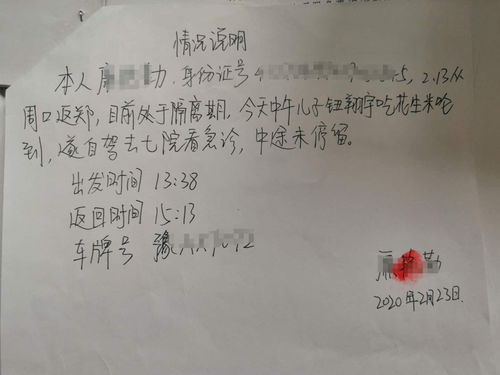 情况说明
本人 力.身份证号 5, 2.13从
周口返郑,目前处于隔离期,今天中午儿子钮翔宇吃花生米呛
到,遂自驾去七院看急诊,中途未停留。
出发时间 13:38
返回时间 15:13
车牌号 豫
勤
2020年2月23日.